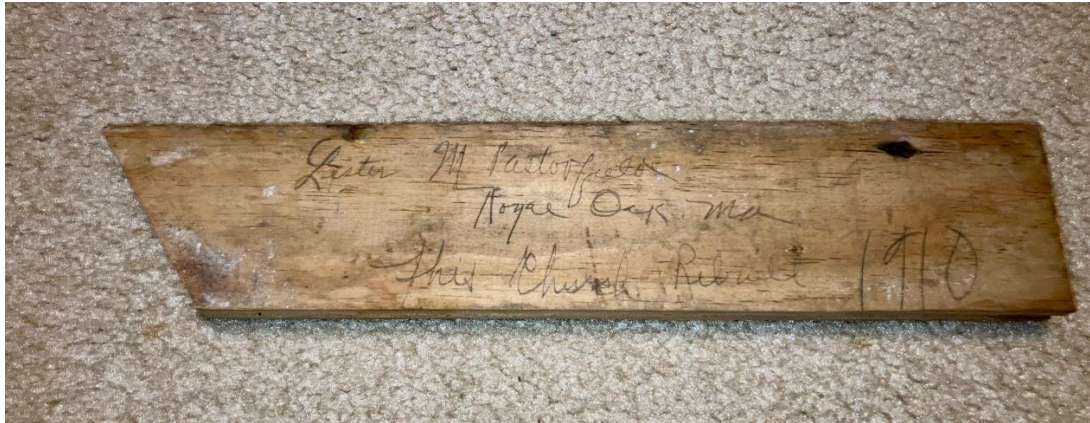 Lester M Pastorfield
Royal Oak Md
This Church Rebuilt 1910